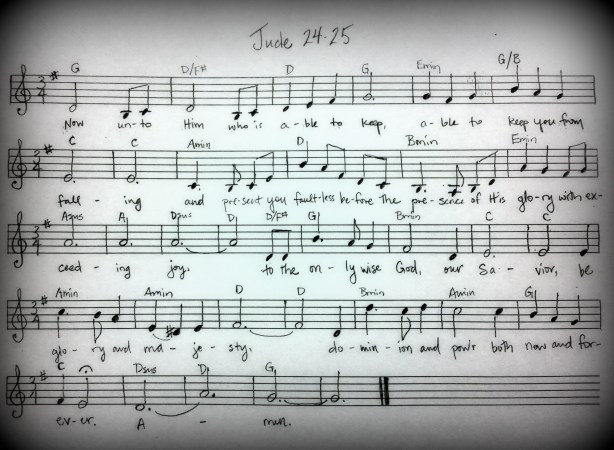 Jude 24-25
G D/F# D G Emin G/B
Now un-to Him who is a-ble to keep, a-ble to keep you from
C C Amin D Bmin Emin
fall-ing and pre-sent you fault-less be-fore The pre-sence of His glo-ry with ex-
Asus A Dsus D D/F# G Bmin C C
ceed-ing joy. to the on-ly wise God, our Sa-vior, be
Amin Amin D D Bmin Amin G
glo-ry and ma-je-sty, do-min-ion and pow'r both now and for-
C Dsus D G
ev-er. A-men.